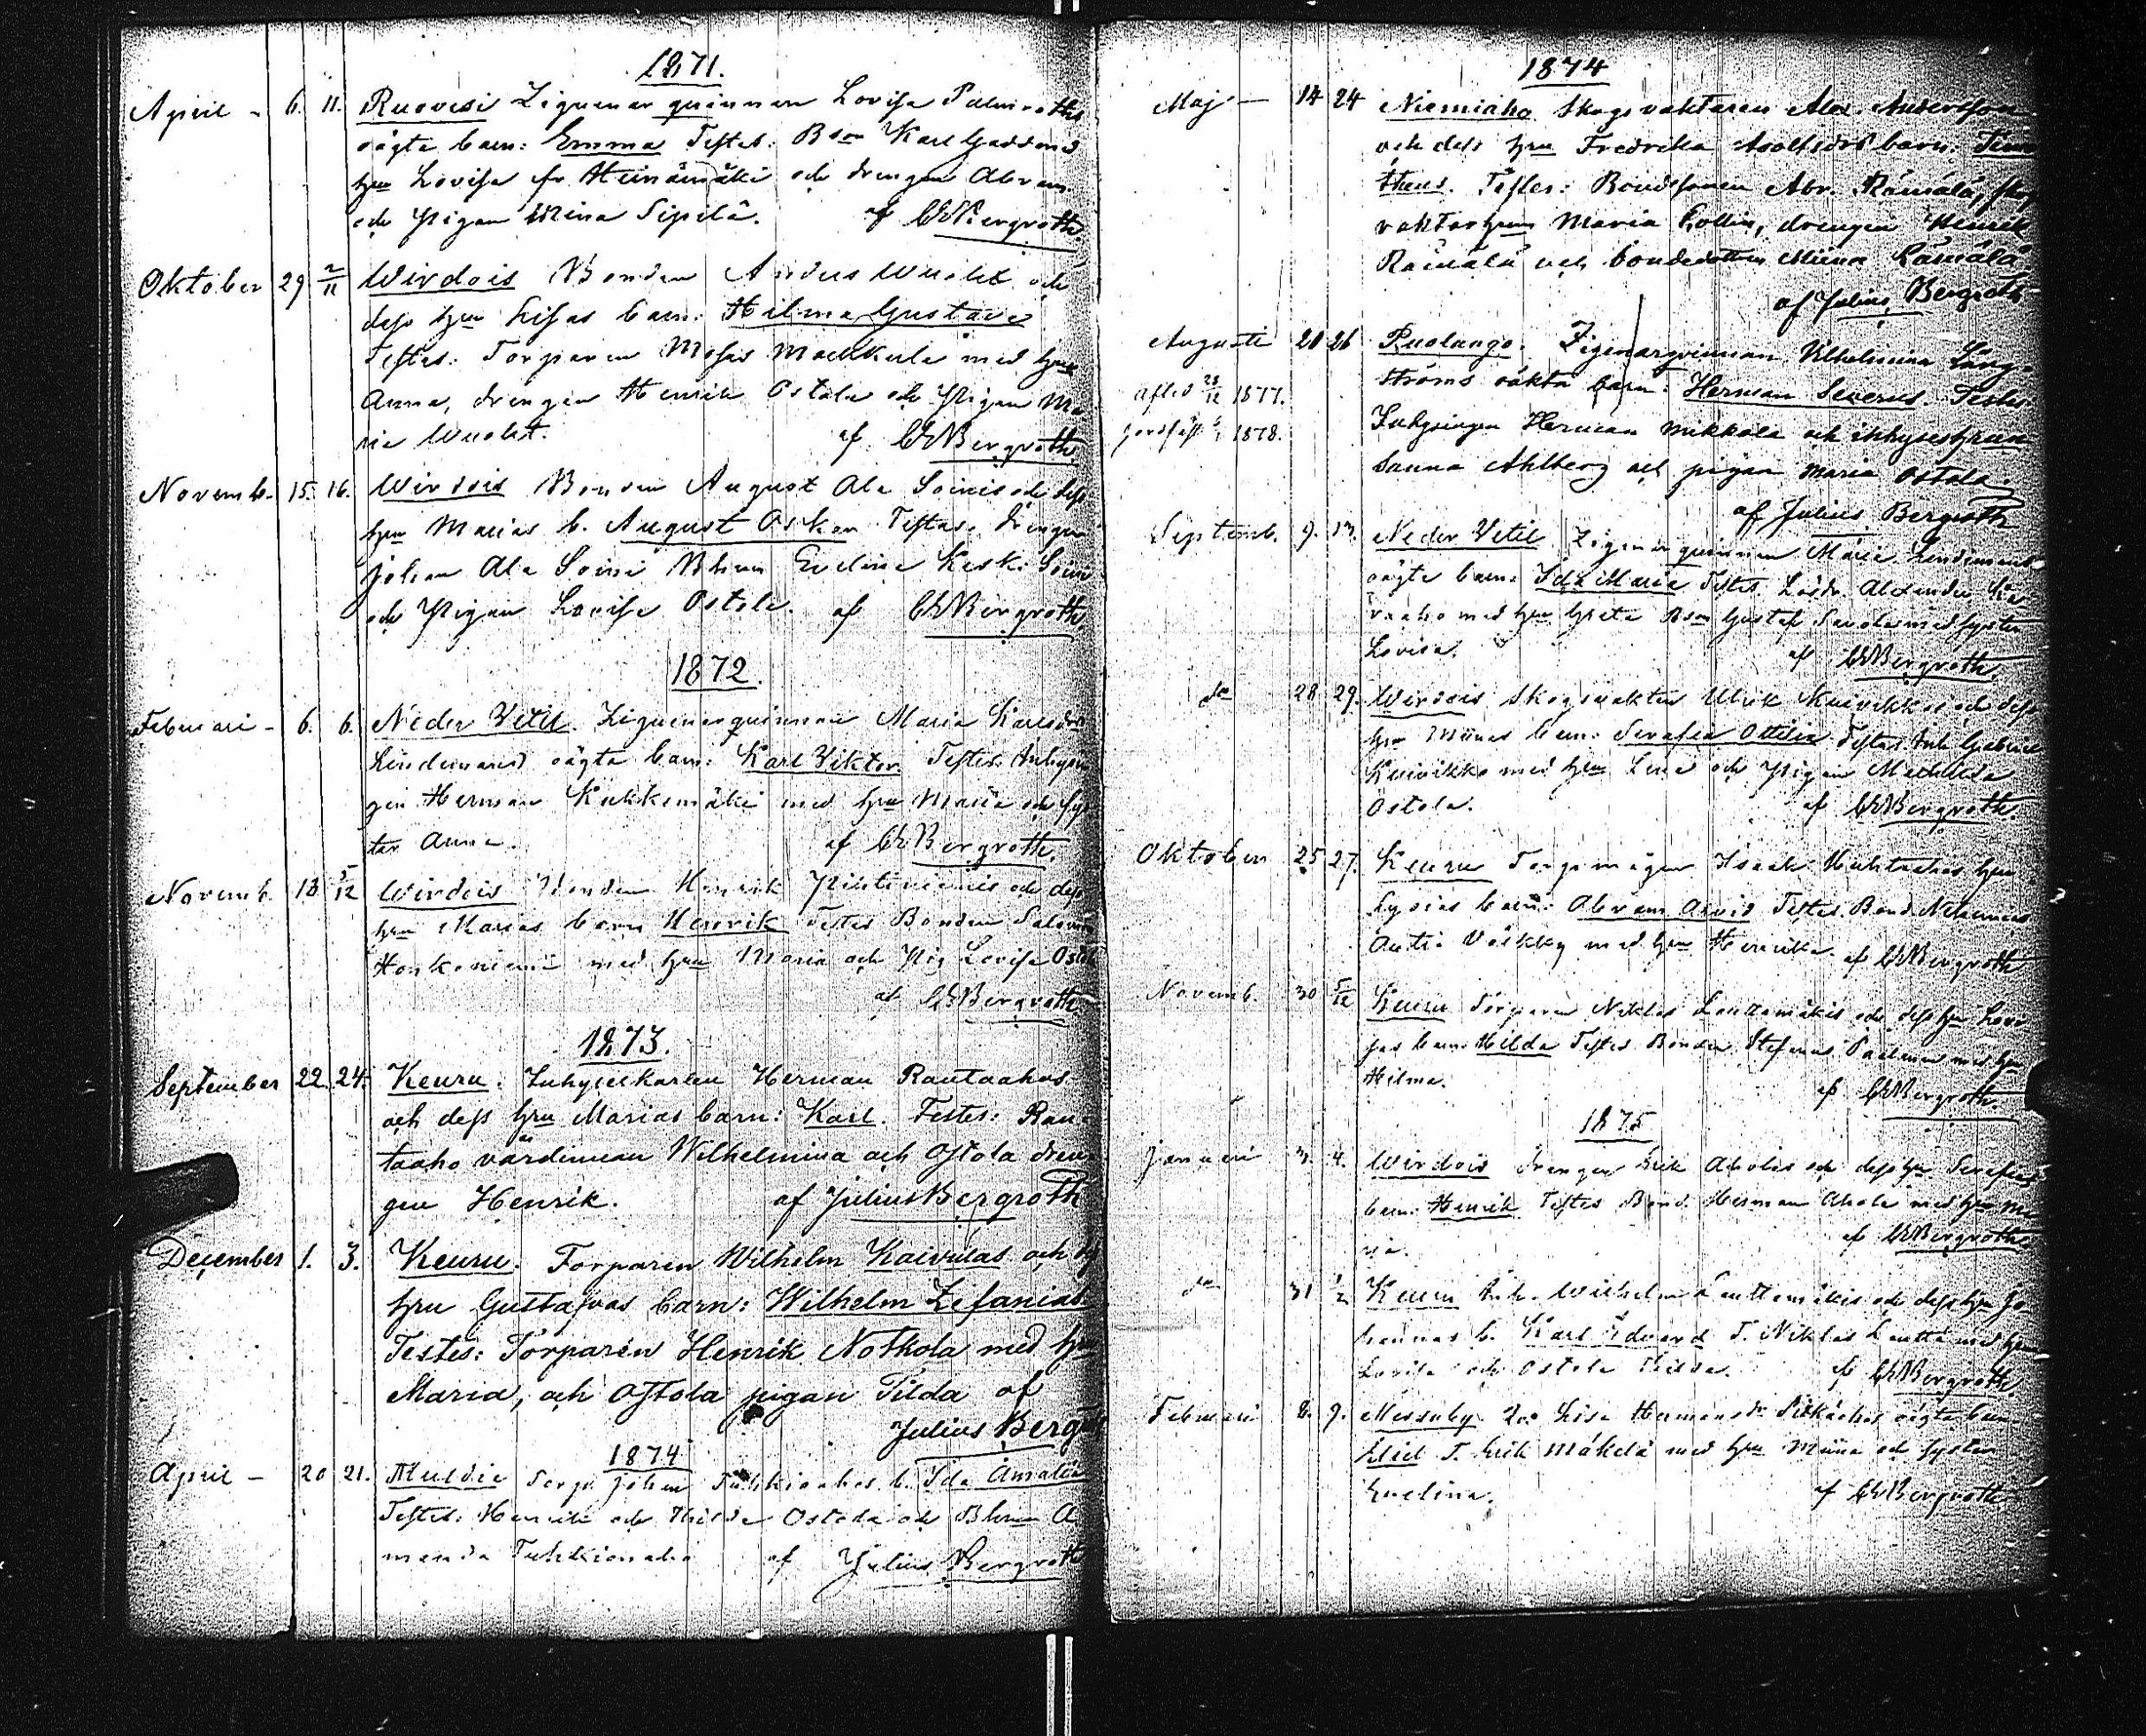 1871.
April - 6. 11. Ruovesi Ziguenar qvinnan Lovisa Palmroths
oägta barn: Emma Testes: Bson Karl
hru Lovisa fr Heinämäki och drengen Abram
och Pigan Mina Sipilä. af CEBergroth.
Oktober 29 2/11 Wirdois Bonden Anders Wuolet och
dess hru Lisas barn: Hilma Gustava
Testes: Torparen Mosas med hru
Anna, drengen Henrik Ostola och Pigan Ma
ria Wuolet. af CEBergroth.
Novemb. 15. 16. Wirdois Bonden August Ala Soinis och dess
hru Marias b. August Oskar Testes. Drengen
Johan Ala Soini Bhrun Evelina Keski Soini
och Pigan Lovisa Ostola. af CEBergroth
1872.
Februari - 6. 6. Neder Vetil. Ziguenarqvinnan Maria Karlsdr
Lindemans oägta barn: Karl Viktor. Testes: Inhysin
gen Herman Kukkomäki med hru Maria och sys
ter Anna. af CEBergroth.
Novemb. 13 5/12 Wirdois Bonden Henrik och dess
hru Marias barn Henrik Testes Bonden Salomon
Honkoniemi med hru Maria och Pig Lovisa Ostol
af CEBergroth
1873.
September 22. 24. Keuru. Inhysekarlen Herman Rautaahos
och dess hru Marias barn: Karl. Testes: Rau-
taaho värdinnan Wilhelmina och Ostola dren
gen Henrik. af Julius Bergroth
December 1. 3. Keuru. Torparen Wilhelm Kaivulas och ds
hru Gustafvas barn: Wilhelm Zefanias.
Testes: Torparen Henrik Notkola med hru
Maria, och Ostola pigan Tilda af
Julius Berg
1874
April - 20 21. Multia Torp. Johan Tuhkioahos b. Ida Amalia
Testes: Henrik och Thilda Ostola och Bhrun A
manda Tuhkionaho af Julius Bergroth
1874
Maj - 14 24 Niemiaho Skogsvaktaren Alex. Andersson
och dess hru Fredrika Adolfsdrs barn. Timo
theus. Testes: Bondesonen Abr. Rämälä, skog
vaktarhrun Maria Kollin, drengen Henrik
Rämälä och bondedottren Miina Rämälä
af Julius Bergroth
Augusti 20 26 Puolango. Zigenarqvinnan Vilhelmina Läng-
ströms oäkta barn: Herman Severus. Testes
afled 28/12 1877. Inhysingen Herman Mikkola och inhyseshrun
jordfäst 1878. Sanna Ahlberg och pigan Maria Ostola.
af Julius Bergroth
Septemb. 9. 13. Neder Vetil Zigenarqvinnan Maria Lindemans
oägta barn: Ida Maria Testes Lösdr. Alexander
raaho med hru Greta Bson Gustaf Savola med syster
Lovisa. af CEBergroth.
do 28 29. Wirdois Skogvaktar Ulrik Kuivikkos och dess
hru Minas barn: Serafia Ottilia Testes Inh. Gabriel
Kuivikko med hru Lena och Pigan Mathilda
Ostola. af CEBergroth
Oktober 25 27. Keuru Torpmågen Isaak Huhtaahos hru
Lysias barn: Abram Arvid Testes Bond. Nehemias
Antti Väkky med hru Henrika. af CEBergroth
Novemb. 30 5/12 Keuru Torparen Niklas Lauttamäkis och dess hru Lovi
sas barn Hilda Testes Bonden Stefanus med hru
Hilma. af CEBergroth.
1875
Januari 3. 4. Wirdois Drengen Erik Aholas och dess hru Serafias
barn: Henrik Testes Bond. Herman Ahola med hru Ma
ria. af CEBergroth
do 31 1/2 Keuru Inh. Wilhelm Lauttamäkis och dess hru Jo
hannas b. Karl Edvard T. Niklas Lautta med hru
Lovisa och Ostola Thilda. af CEBergroth
Februari 8. 9. Messuby Lösa Hermansdr oägta barn
Elid T. Erik Mäkelä med hru Miina och syster
Evelina. af CEBergroth